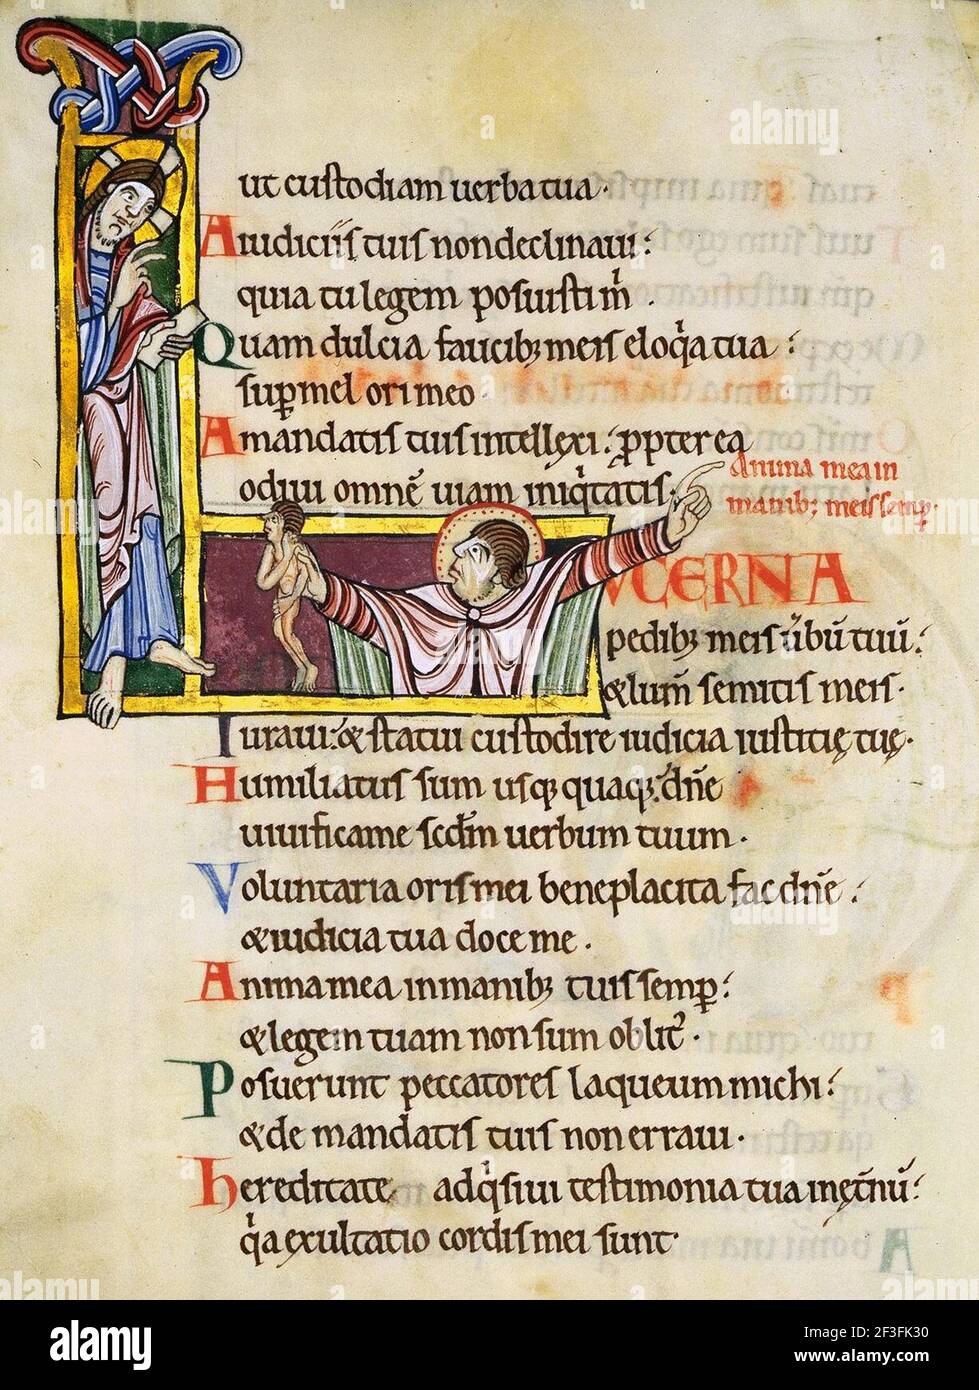 ut custodiam uerba tua.
A iudiciis tuis non declinaui:
quia tu legem posuisti m̄.
Quam dulcia faucib; meis eloq̄a tua:
sup̄ mel ori meo.
A mandatis tuis intellexi: ꝓpterea
odiui omnē uiam iniq̄tatis.
Anima mea in
manib; meis semp̄.
LUCERNA
pedib; meis u̇bū tuū:
& lum̄ semitis meis.
Iuraui: & statui custodire iudicia iustitię tuę.
Humiliatus sum usq; quaq; dn̄e
uiuifica me scd̄m uerbum tuum.
Voluntaria oris mei beneplacita fac dn̄e:
& iudicia tua doce me.
Anima mea in manib; tuis semp̄:
& legem tuam non sum oblit᾿.
Posuerunt peccatores laqueum michi:
& de mandatis tuis non erraui.
hereditate adq̄siui testimonia tua in ęt̄nū:
q̄a exultatio cordis mei sunt
alamy
Image ID: 2F3FK30
www.alamy.com